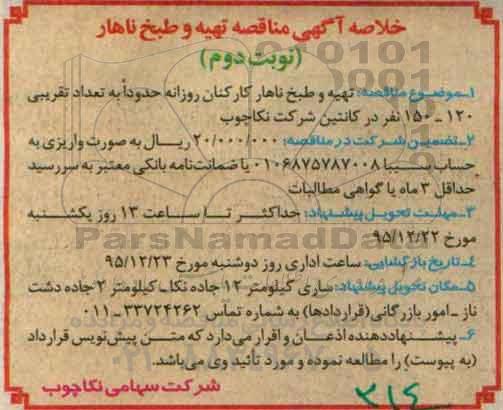 خلاصه آگهی مناقصه تهیه و طبخ ناهار
(نوبت دوم)
۱ـ موضوع مناقصه: تهیه و طبخ ناهار کارکنان روزانه حدوداً به تعداد تقریبی
۱۲۰ ـ ۱۵۰ نفر در کانتین شرکت نکاچوب
۲ـ تضمین شرکت در مناقصه: ۲۰/۰۰۰/۰۰۰ ریـال به صورت واریزی به
حساب سیبا ۰۱۰۶۸۷۵۷۸۷۰۰۸ یا ضمانت‌نامه بانکی معتبر به سررسید
حداقل ۳ ماه یا گواهی مطالبات
۳ـ مهلت تحویل پیشنهاد: حداکثر تا ساعت ۱۳ روز یکشنبه
مورخ ۹۵/۱۲/۲۲
۴ـ تاریخ بازگشایی: ساعت اداری روز دوشنبه مورخ ۹۵/۱۲/۲۳
۵ـ مکان تحویل پیشنهاد: ساری کیلومتر ۱۲ جاده نکا ـ کیلومتر ۲ جاده دشت
ناز ـ امور بازرگانی (قراردادها) به شماره تماس ۳۳۷۲۴۲۶۲ ـ ۰۱۱
۶ـ پیشنهاددهنده اذعان و اقرار می‌دارد که متن پیش‌نویس قرارداد
(به پیوست) را مطالعه نموده و مورد تأئید وی می‌باشد.
شرکت سهامی نکاچوب
ParsNamadData